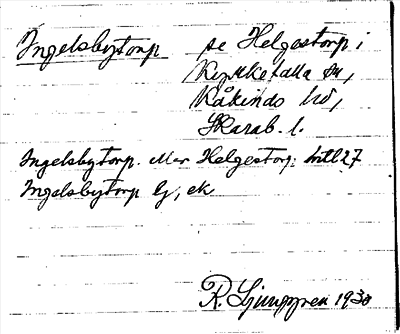 Ingelsbytorp se Helgestorp i
Kyrkefalla sn,
Kåkinds hd,
Skarab. l.
Ingelsbytorp. Mar Helgestorp. Mtl 27
Ingelsbytorp lg, ek
R. Ljunggren 1930